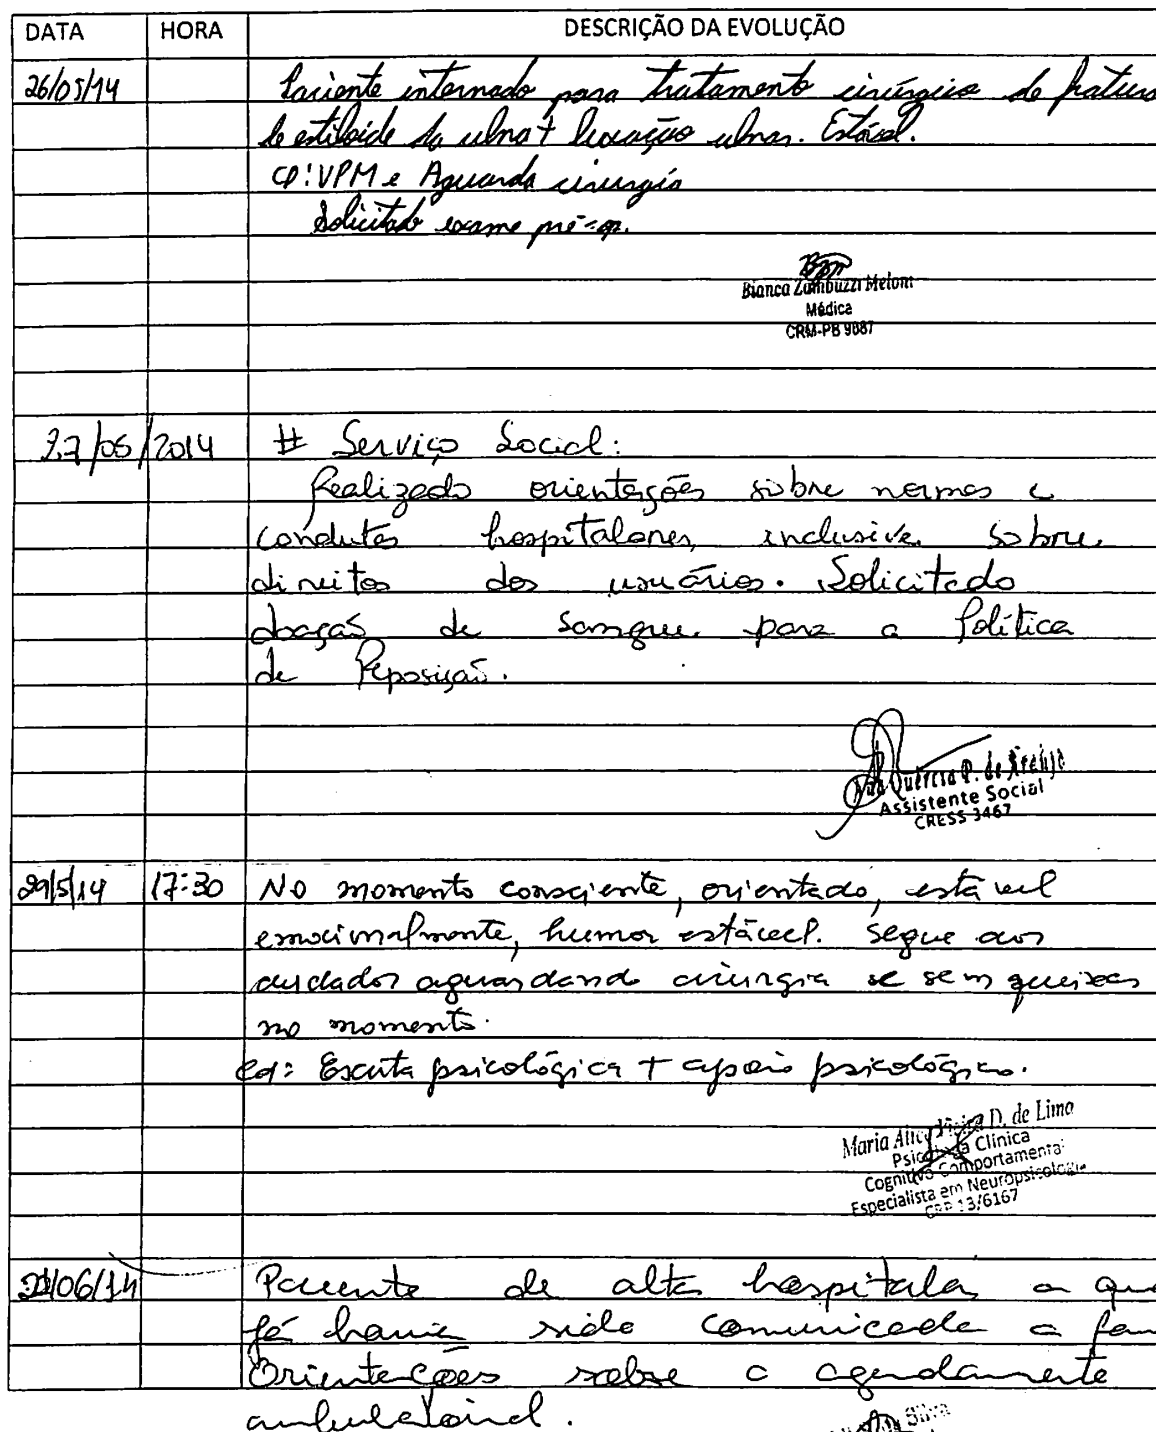 DATA HORA DESCRIÇÃO DA EVOLUÇÃO
26/05/14 Paciente internado para tratamento cirúrgico de fratura
de estiloide da ulna + luxação ulnar. Estável.
CD: VPM e Aguarda cirurgia
Solicitado exame pré-op.
Bianca Zambuzzi Meloni
Médica
CRM-PB 9087
27/05/2014 # Serviço Social:
Realizado orientações sobre normas e
condutas hospitalares, inclusive sobre
direitos dos usuários. Solicitado
doação de sangue para a Política
de Reposição.
Quercia P. de Araújo
Assistente Social
CRESS 3467
29/5/14 17:30 No momento consciente, orientado, estável
emocionalmente, humor estável. Segue aos
cuidados aguardando cirurgia se sem queixas
no momento.
Cd: Escuta psicológica + apoio psicológico.
Maria D. de Lima
Psicóloga Clínica
Cognitivo Comportamental
Especialista em Neuropsicologia
CRP 13/6167
/06/14 Paciente de alta hospitala a qu
já havia sido comunicada a fam
Orientações sobre o agendamento
ambulatorial.
Silva